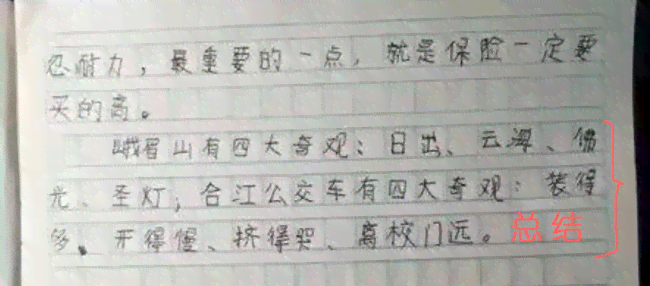 忍耐力，最重要的一点，就是保险一定要
买的高。
峨眉山有四大奇观：日出、云海、佛
光、圣灯；合江公交车有四大奇观：装得
多、开得慢、挤得哭、离校门远。 总结